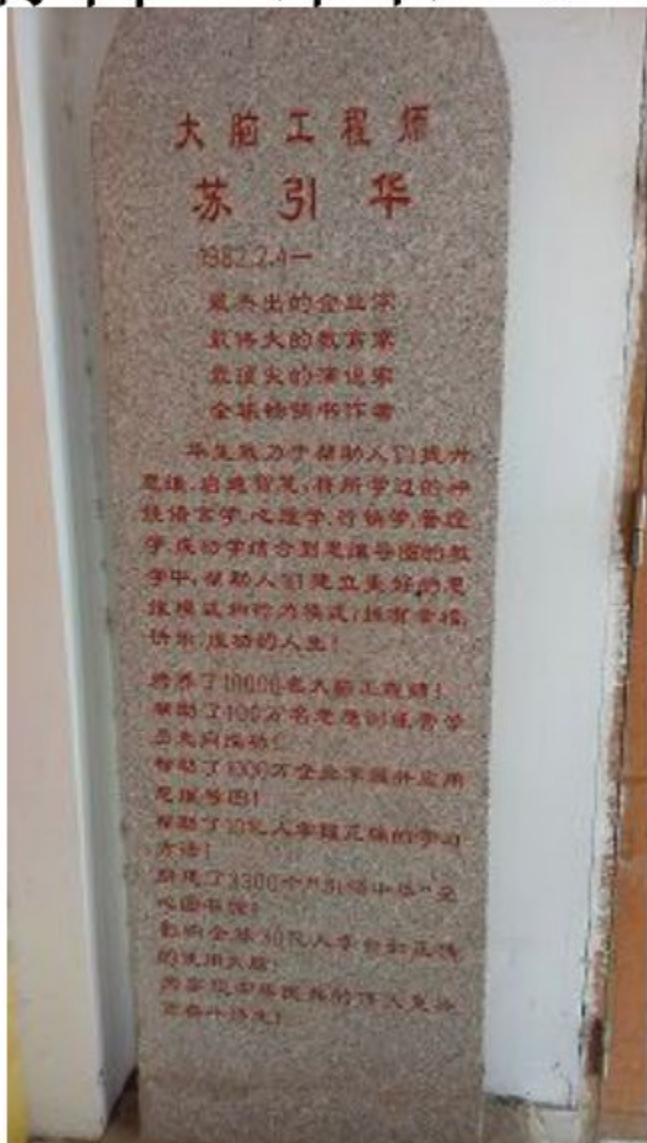 大脑工程师
苏引华
1982.2.4一
最杰出的企业家
最伟大的教育家
最强大的演说家
全球畅销书作者
毕生致力于帮助人们提升
思维、启迪智慧,将所学过的神
经语言学、心理学、行销学、管理
学、成功学结合到思维导图的教
学中,帮助人们建立美好的思
维模式和行为模式,拥有幸福、
快乐、成功的人生!
培养了10000名大脑工程师!
帮助了100万名思维训练营学
员走向成功!
帮助了1000万企业掌握并应用
思维导图!
帮助了10亿人掌握正确的学习
方法!
捐建了3300个"引领中华"爱
心图书馆!
影响全球30亿人学会如何正确
的使用大脑!
为实现中华民族的伟大复兴
而奋斗终生!